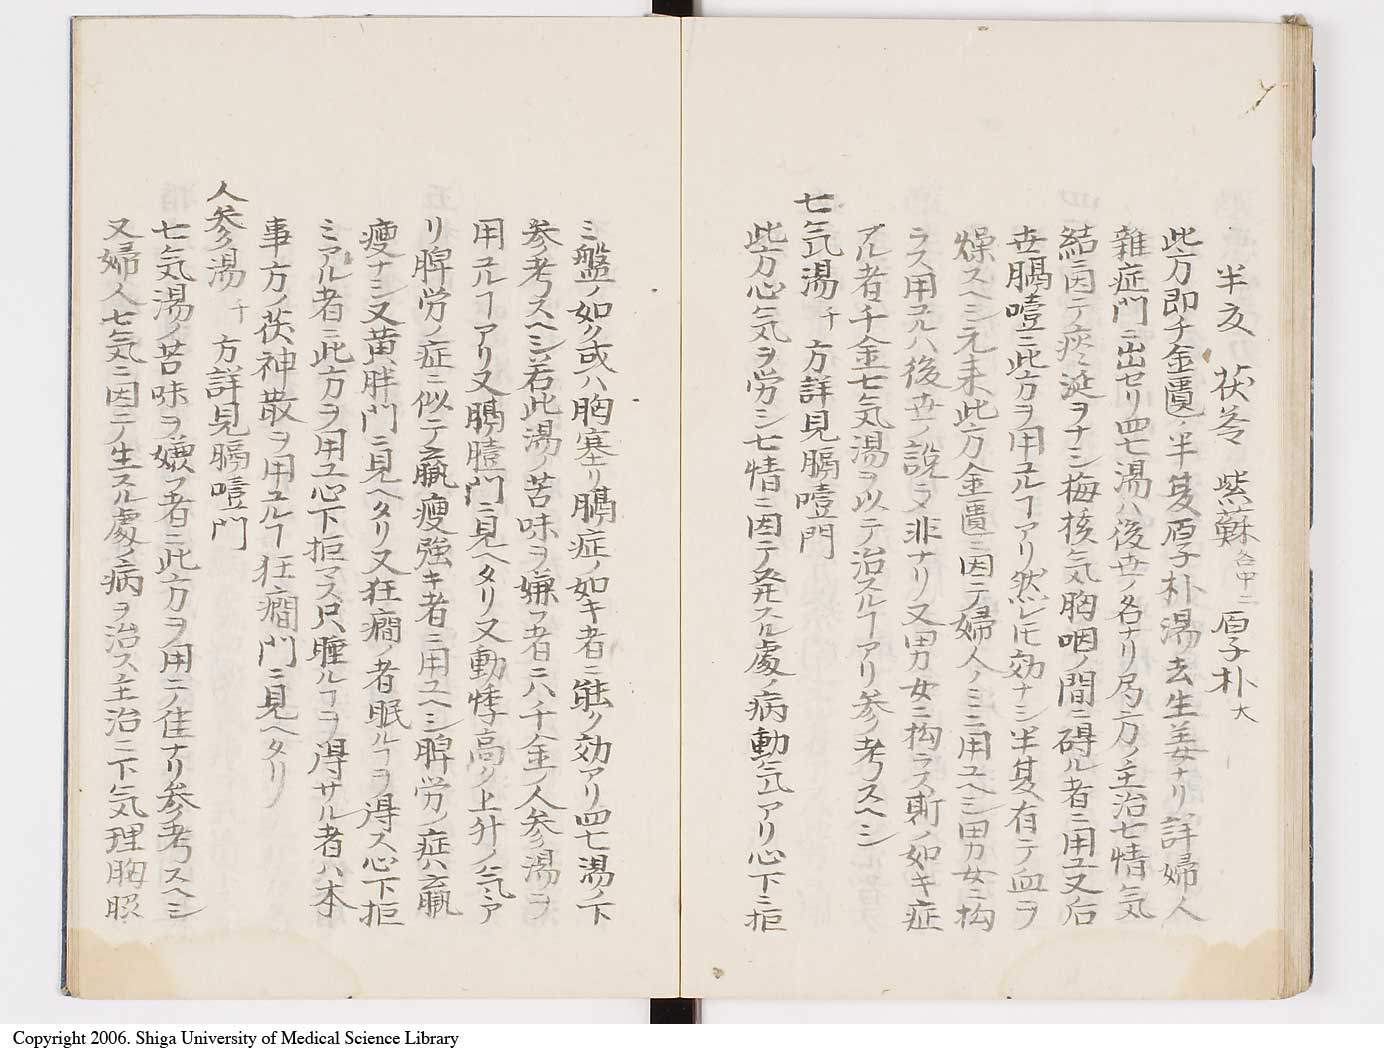 半夏 茯苓 紫蘇各中二 厚朴大
此方即チ金匱ノ半夏厚朴湯去生姜ナリ詳婦人
雜症門ニ出セリ四七湯ハ後世ノ名ナリ局方ノ主治七情気
結ニ因テ痰涎ヲナシ梅核気胸咽ノ間ニ碍ル者ニ用ユ又后
世膈噎ニ此方ヲ用ユルヿアリ然レ𪜈効ナシ半夏有テ血ヲ
燥スヘシ元来此方金匱ニ因テ婦人ノミニ用ユヘシ男女ニ拘
ラス用ユルハ後世ノ説ニ乄非ナリ又男女ニ拘ラス斯ノ如キ症
アル者千金七気湯ヲ以テ治スルヿアリ参考スヘシ
七気湯 千 方詳見膈噎門
此方心気ヲ労シ七情ニ因テ発スル處ノ病動気アリ心下ニ拒
ミ盤ノ如ク或ハ胸塞リ膈症ノ如キ者ニ能ク効アリ四七湯ノ下
参考スヘシ若此湯ノ苦味ヲ嫌フ者ニハ千金ノ人参湯ヲ
用ユルヿアリ又膈噎門ニ見ヘタリ又動悸高ク上升ノ気ア
リ脾労ノ症ニ似テ羸痩強キ者ニ用ユヘシ脾労ノ症ハ羸
痩ナシ又黄胖門ニ見ヘタリ又狂癇ノ者眠ルヿヲ得ス心下拒
ミアル者ニ此方ヲ用ユ心下拒マス只腫ルヿヲ得サル者ハ本
事方ノ茯神散ヲ用ユルヿ狂癇門ニ見ヘタリ
人参湯 千 方詳見膈噎門
七気湯ノ苦味ヲ嫌フ者ニ此方ヲ用テ佳ナリ参考スヘシ
又婦人七気ニ因テ生スル處ノ病ヲ治ス主治ニ下気理胸
Copyright 2006. Shiga University of Medical Science Library